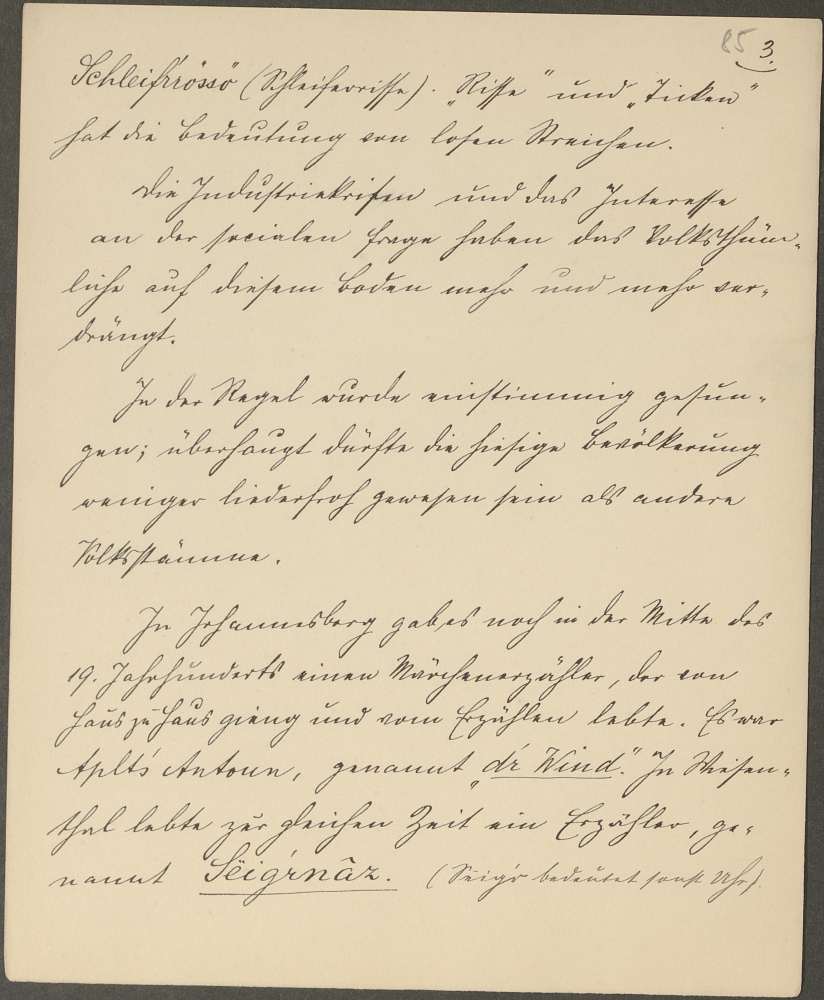 85 3.
Schleifrrössö (Schleiferrisse). „Risse" und „Ticken"
hat die Bedeutung von losen Streichen.
Die Industriekrisen und das Interesse
an der socialen Frage haben das Volksthüm-
liche auf diesem Boden mehr und mehr ver-
drängt.
In der Regel wurde einstimmig gesun-
gen; überhaupt dürfte die hiesige Bevölkerung
weniger liederfroh gewesen sein als andere
Volksstämme.
In Johannesberg gab es noch in der Mitte des
19. Jahrhunderts einen Märchenerzähler, der von
Haus zu Haus gieng und vom Erzählen lebte. Es war
Aplt's Antonn, genannt „dr Wind". In Wiesen-
thal lebte zur gleichen Zeit ein Erzähler, ge-
nannt Sëigrnâz. (Seigr bedeutet sonst Uhr).